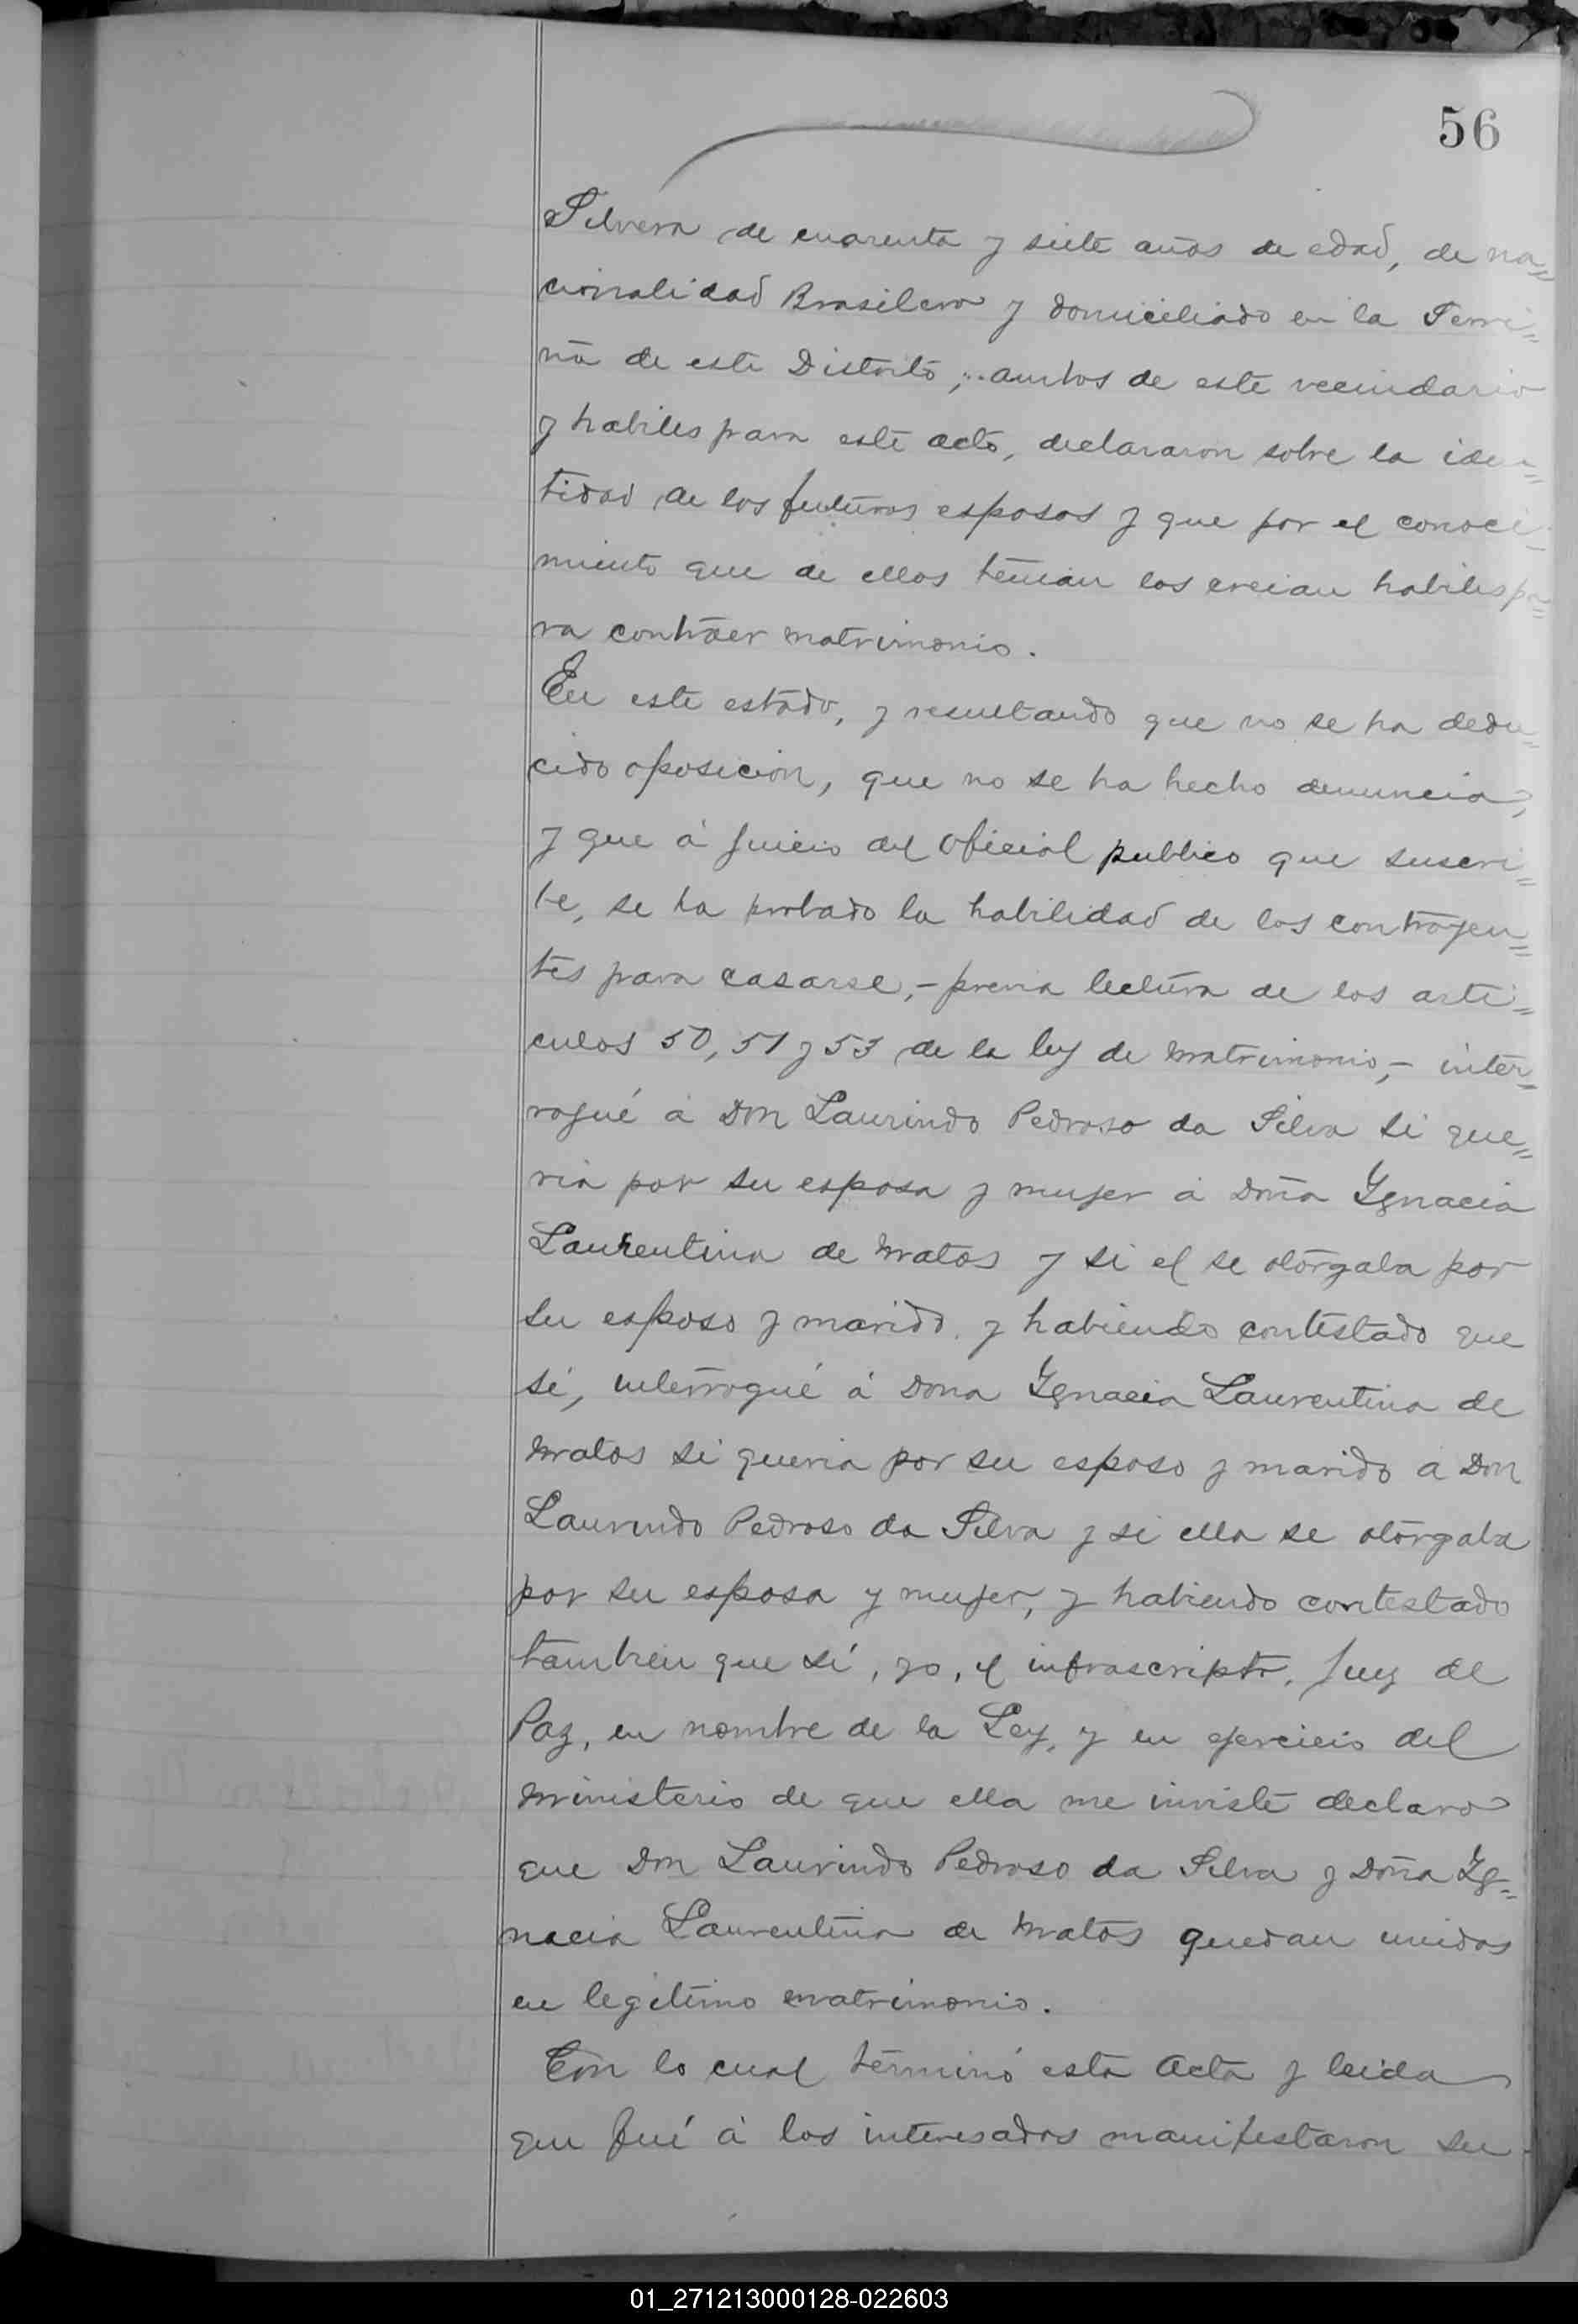 56
Silvera de cuarenta y siete años de edad, de na=
cionalidad Brasilera y domiciliado en la
de este Distrito, ambos de este vecindario
y habiles para este acto, declararon sobre la iden=
tidad de los futuros esposos y que por el conoci=
miento que de ellos tenian los creian habiles pa=
ra contraer matrimonio.
En este estado, y resultando que no se ha dedu=
cido oposicion, que no se ha hecho denuncia,
y que á juicio del oficial publico que suscri=
be, se ha probado la habilidad de los contrayen=
tes para casarse,- previa lectura de los arti=
culos 50, 51 y 53 de la ley de Matrimonio,- inter=
rogué á Don Laurindo Pedroso da Silva si que=
ria por su esposa y mujer á Doña Ygnacia
Laurentina de Matos y si el se otorgaba por
su esposo y marido, y habiendo contestado que
sí, interrogué á Dona Ygnacia Laurentina de
Matos si queria por su esposo y marido a Don
Laurindo Pedroso da Silva y si ella se otorgaba
por su esposa y mujer, y habiendo contestado
tambien que sí, yo, el infrascripto, Juez de
Paz, en nombre de la Ley, y en ejercicio del
Ministerio de que ella me inviste declaro
que Don Laurindo Pedroso da Silva y Doña Yg=
nacia Laurentina de Matos quedan unidos
en legitimo matrimonio.
Con lo cual terminó esta Acta y leida
que fué á los interesados manifestaron su
01_271213000128-022603